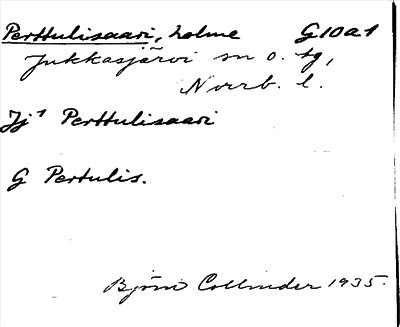 Perttulisaari, holme G10a1
Jukkasjärvi sn o. tg,
Norrb. l.
Jj1 Perttulisaari
G Pertulis.
Björn Collinder 1935.